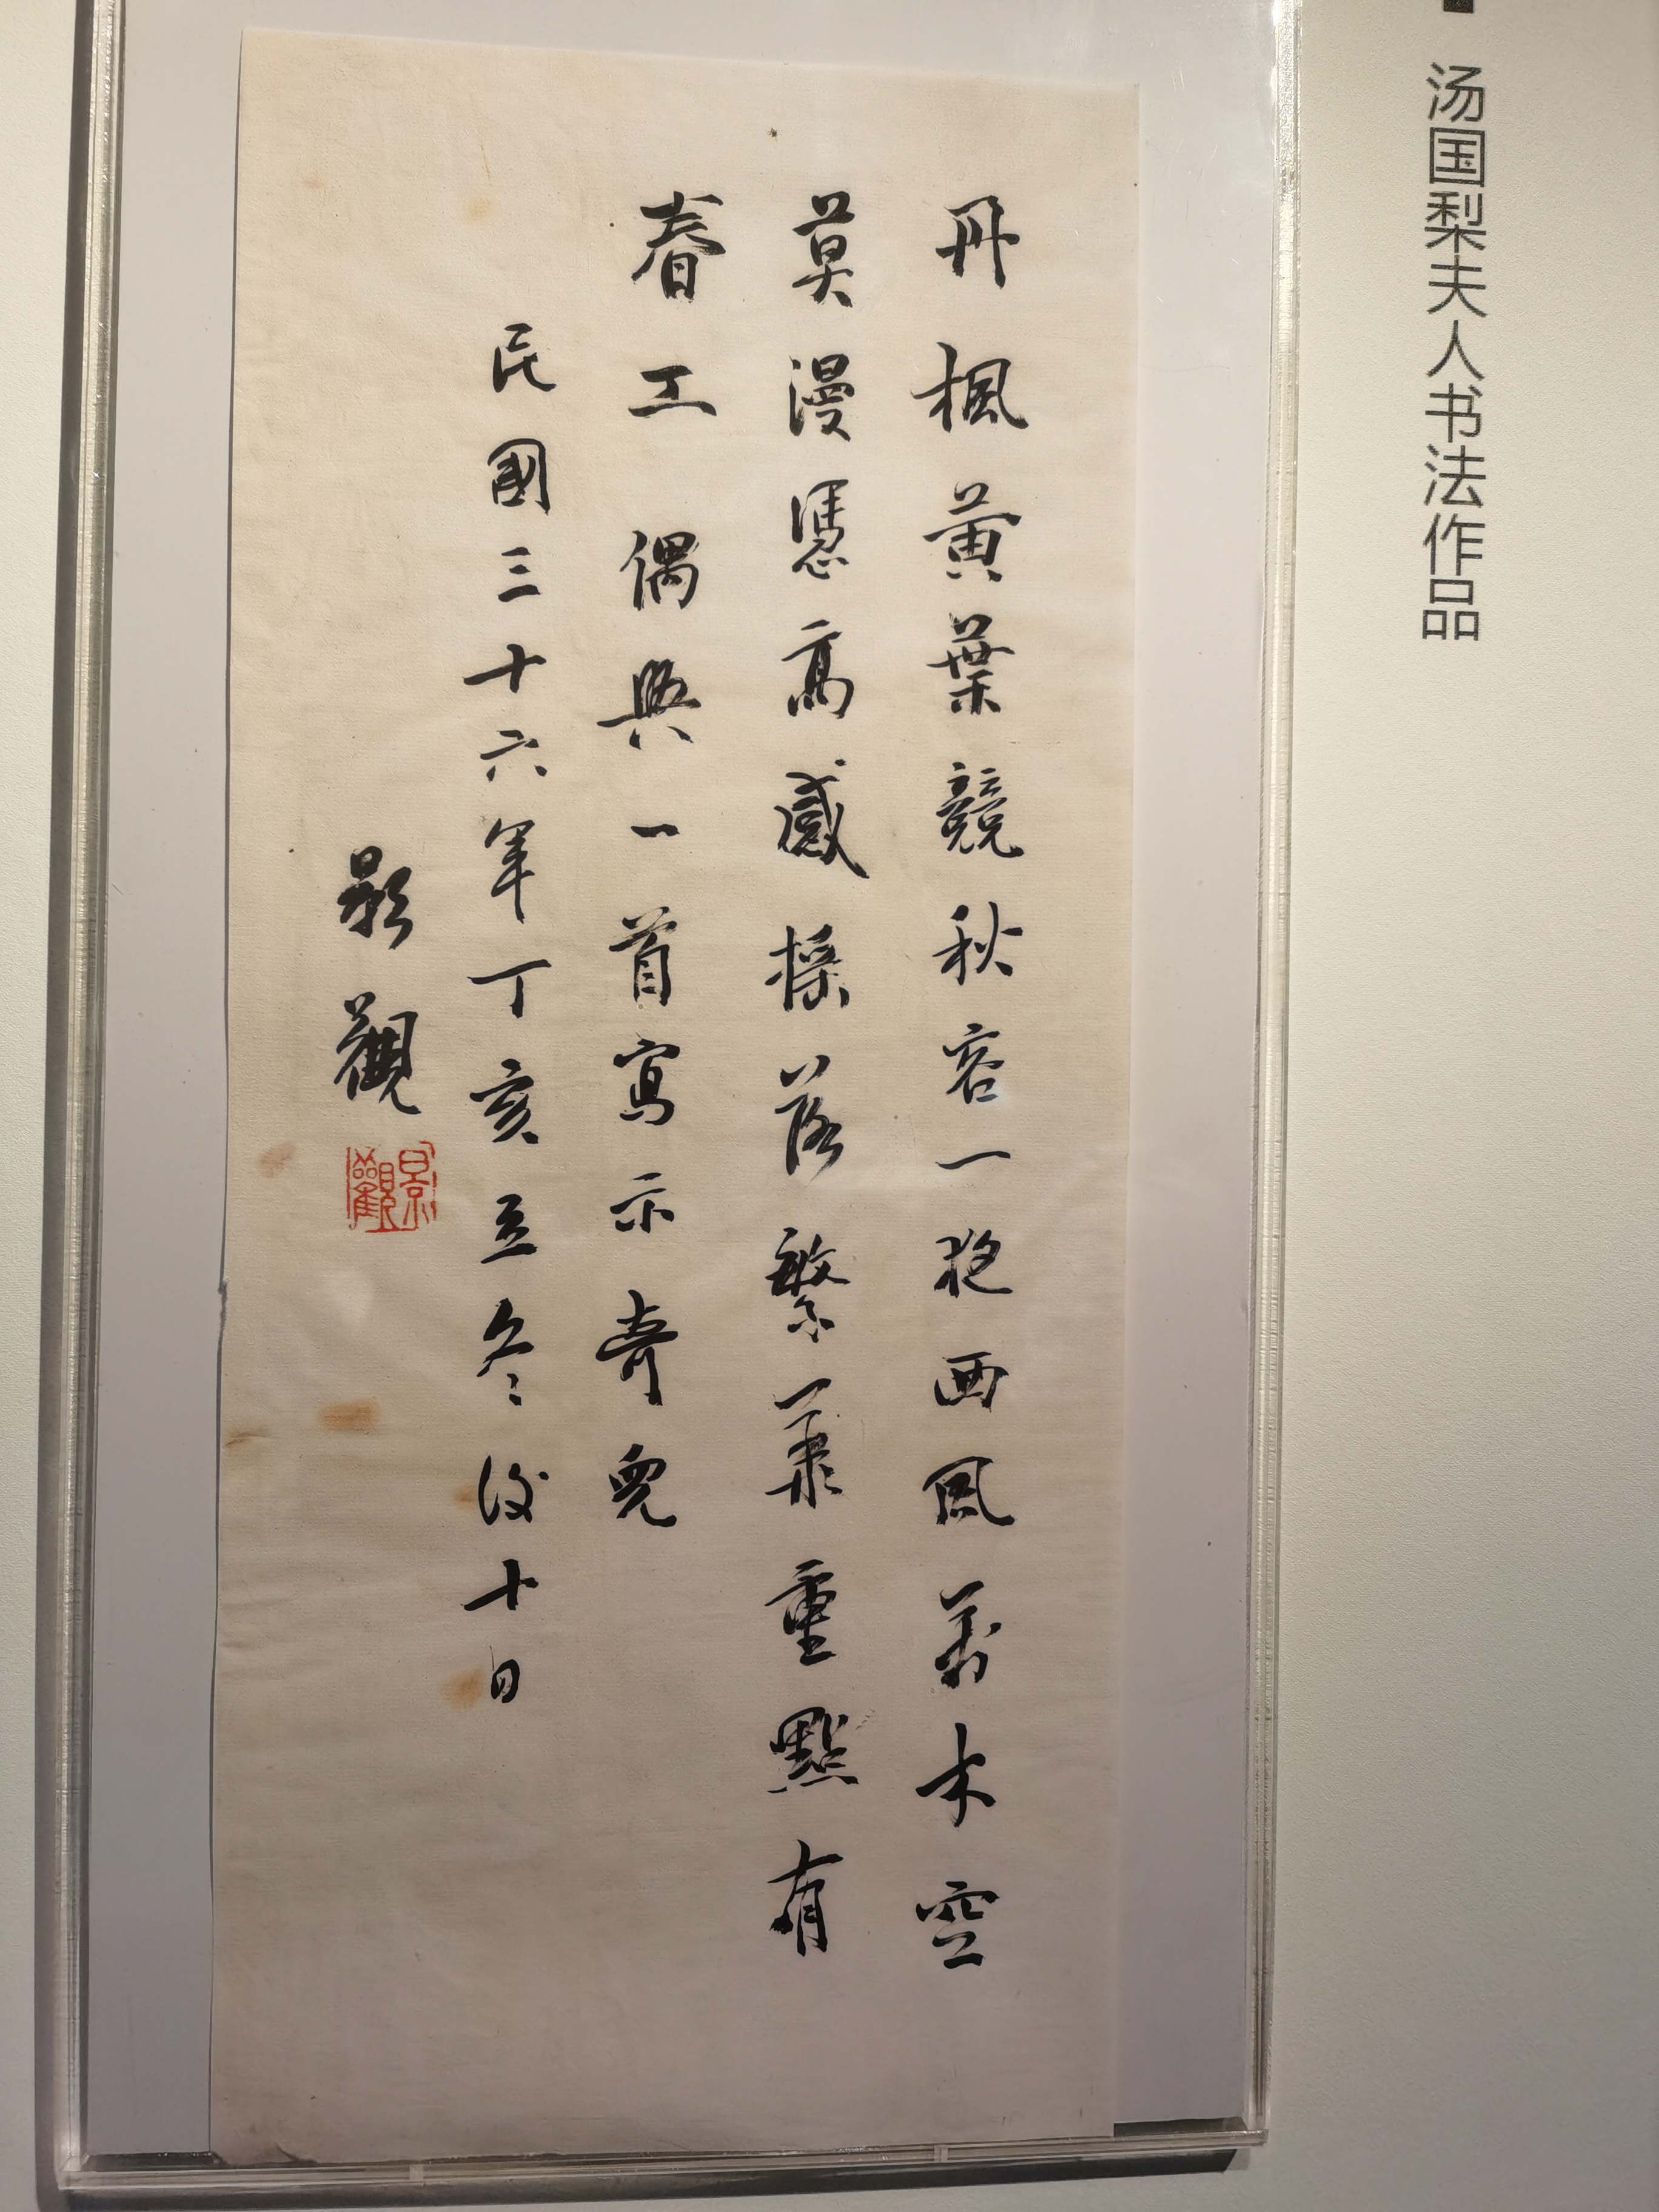 汤国梨夫人书法作品
丹楓黄葉競秋容一夜西風萬木空
莫漫憑高感搖落繁華重點有
春工 偶興一首寫示奇兒
民國三十六年丁亥立冬後十日
影觀
影觀